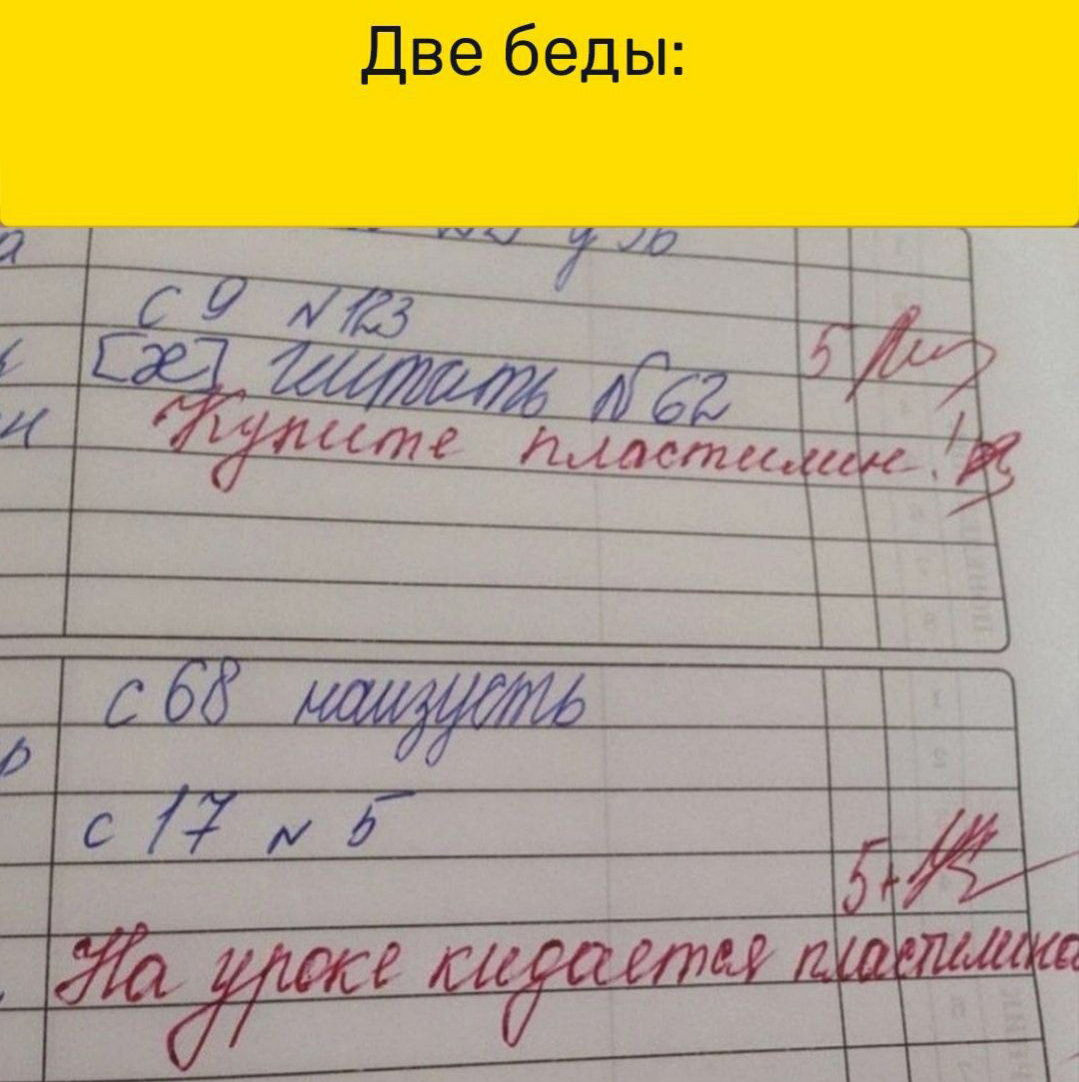 Две беды:
с 9 N 123
5
[æ] читать № 62
Купите пластилин!
с 68 наизусть
с 17 N 5
5+
На уроке кидается пластилино